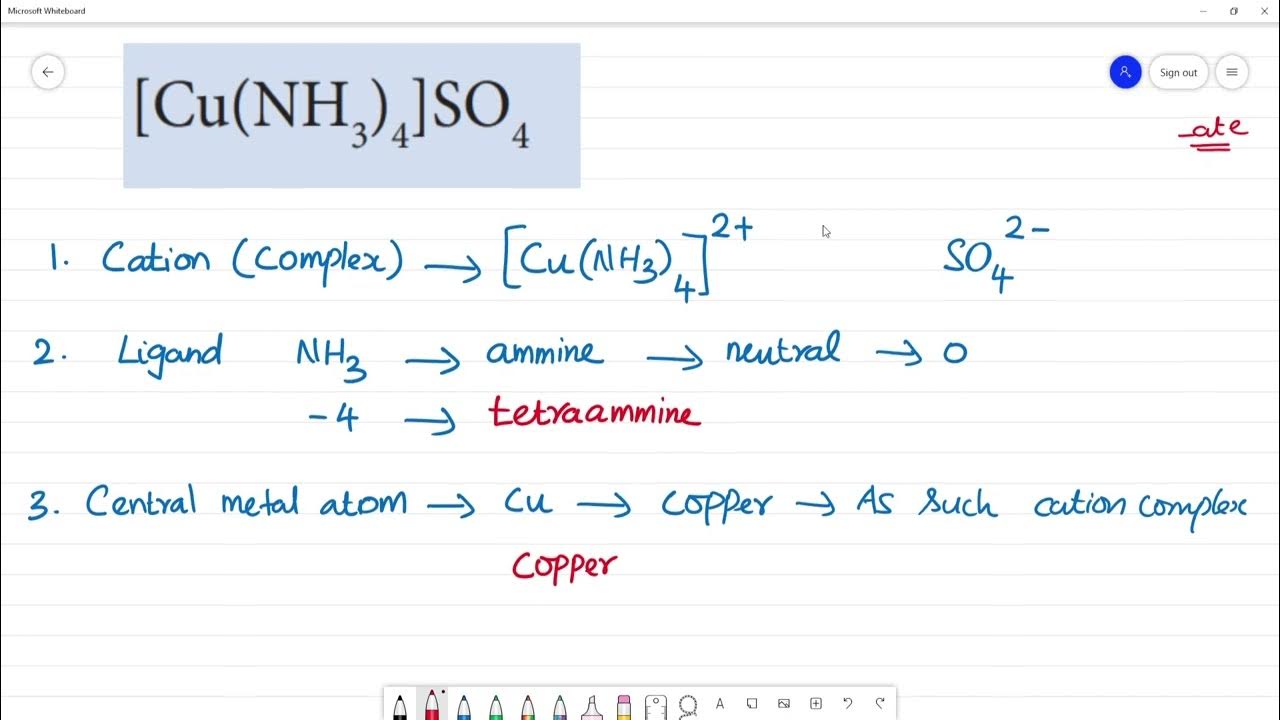 Microsoft Whiteboard
Sign out
[Cu(NH₃)₄]SO₄
-ate
1. Cation (Complex) → [Cu(NH₃)₄]²⁺ SO₄²⁻
2. Ligand NH₃ → ammine → neutral → 0
-4 → tetraammine
3. Central metal atom → Cu → Copper → As such cation complex
Copper
A